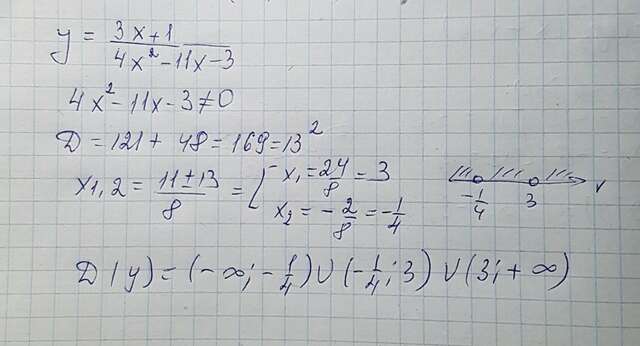 y = (3x+1)/(4x²-11x-3)
4x²-11x-3≠0
D = 121 + 48 = 169 = 13²
x1,2 = (11±13)/8 = [ x₁ = 24/8 = 3
x₂ = -2/8 = -1/4
-1/4 3
D(y) = (-∞; -1/4) ∪ (-1/4; 3) ∪ (3; +∞)